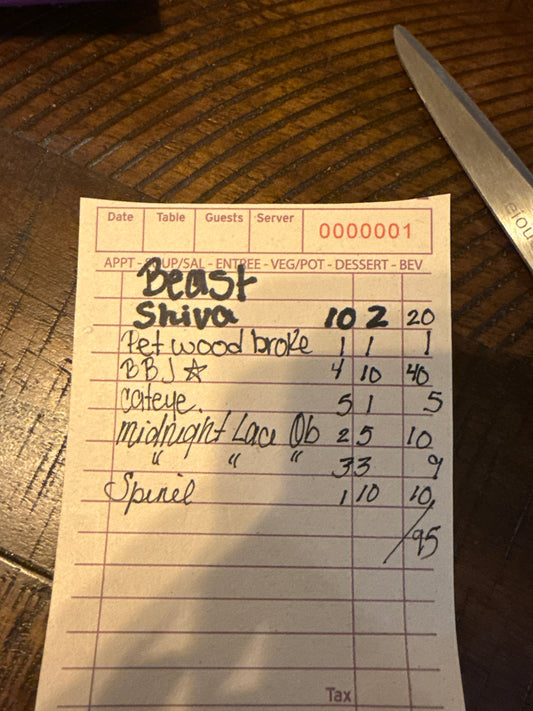 Date Table Guests Server 0000001
APPT - SOUP/SAL - ENTREE - VEG/POT - DESSERT - BEV
Beast
Shiva 10 2 20
Pet wood broke 1 1 1
BBJ ☆ 4 10 40
Cateye. 5 1 5
midnight Lace Ob 2 5 10
" " " 3 3 9
Spinel 1 10 10
/95
Tax